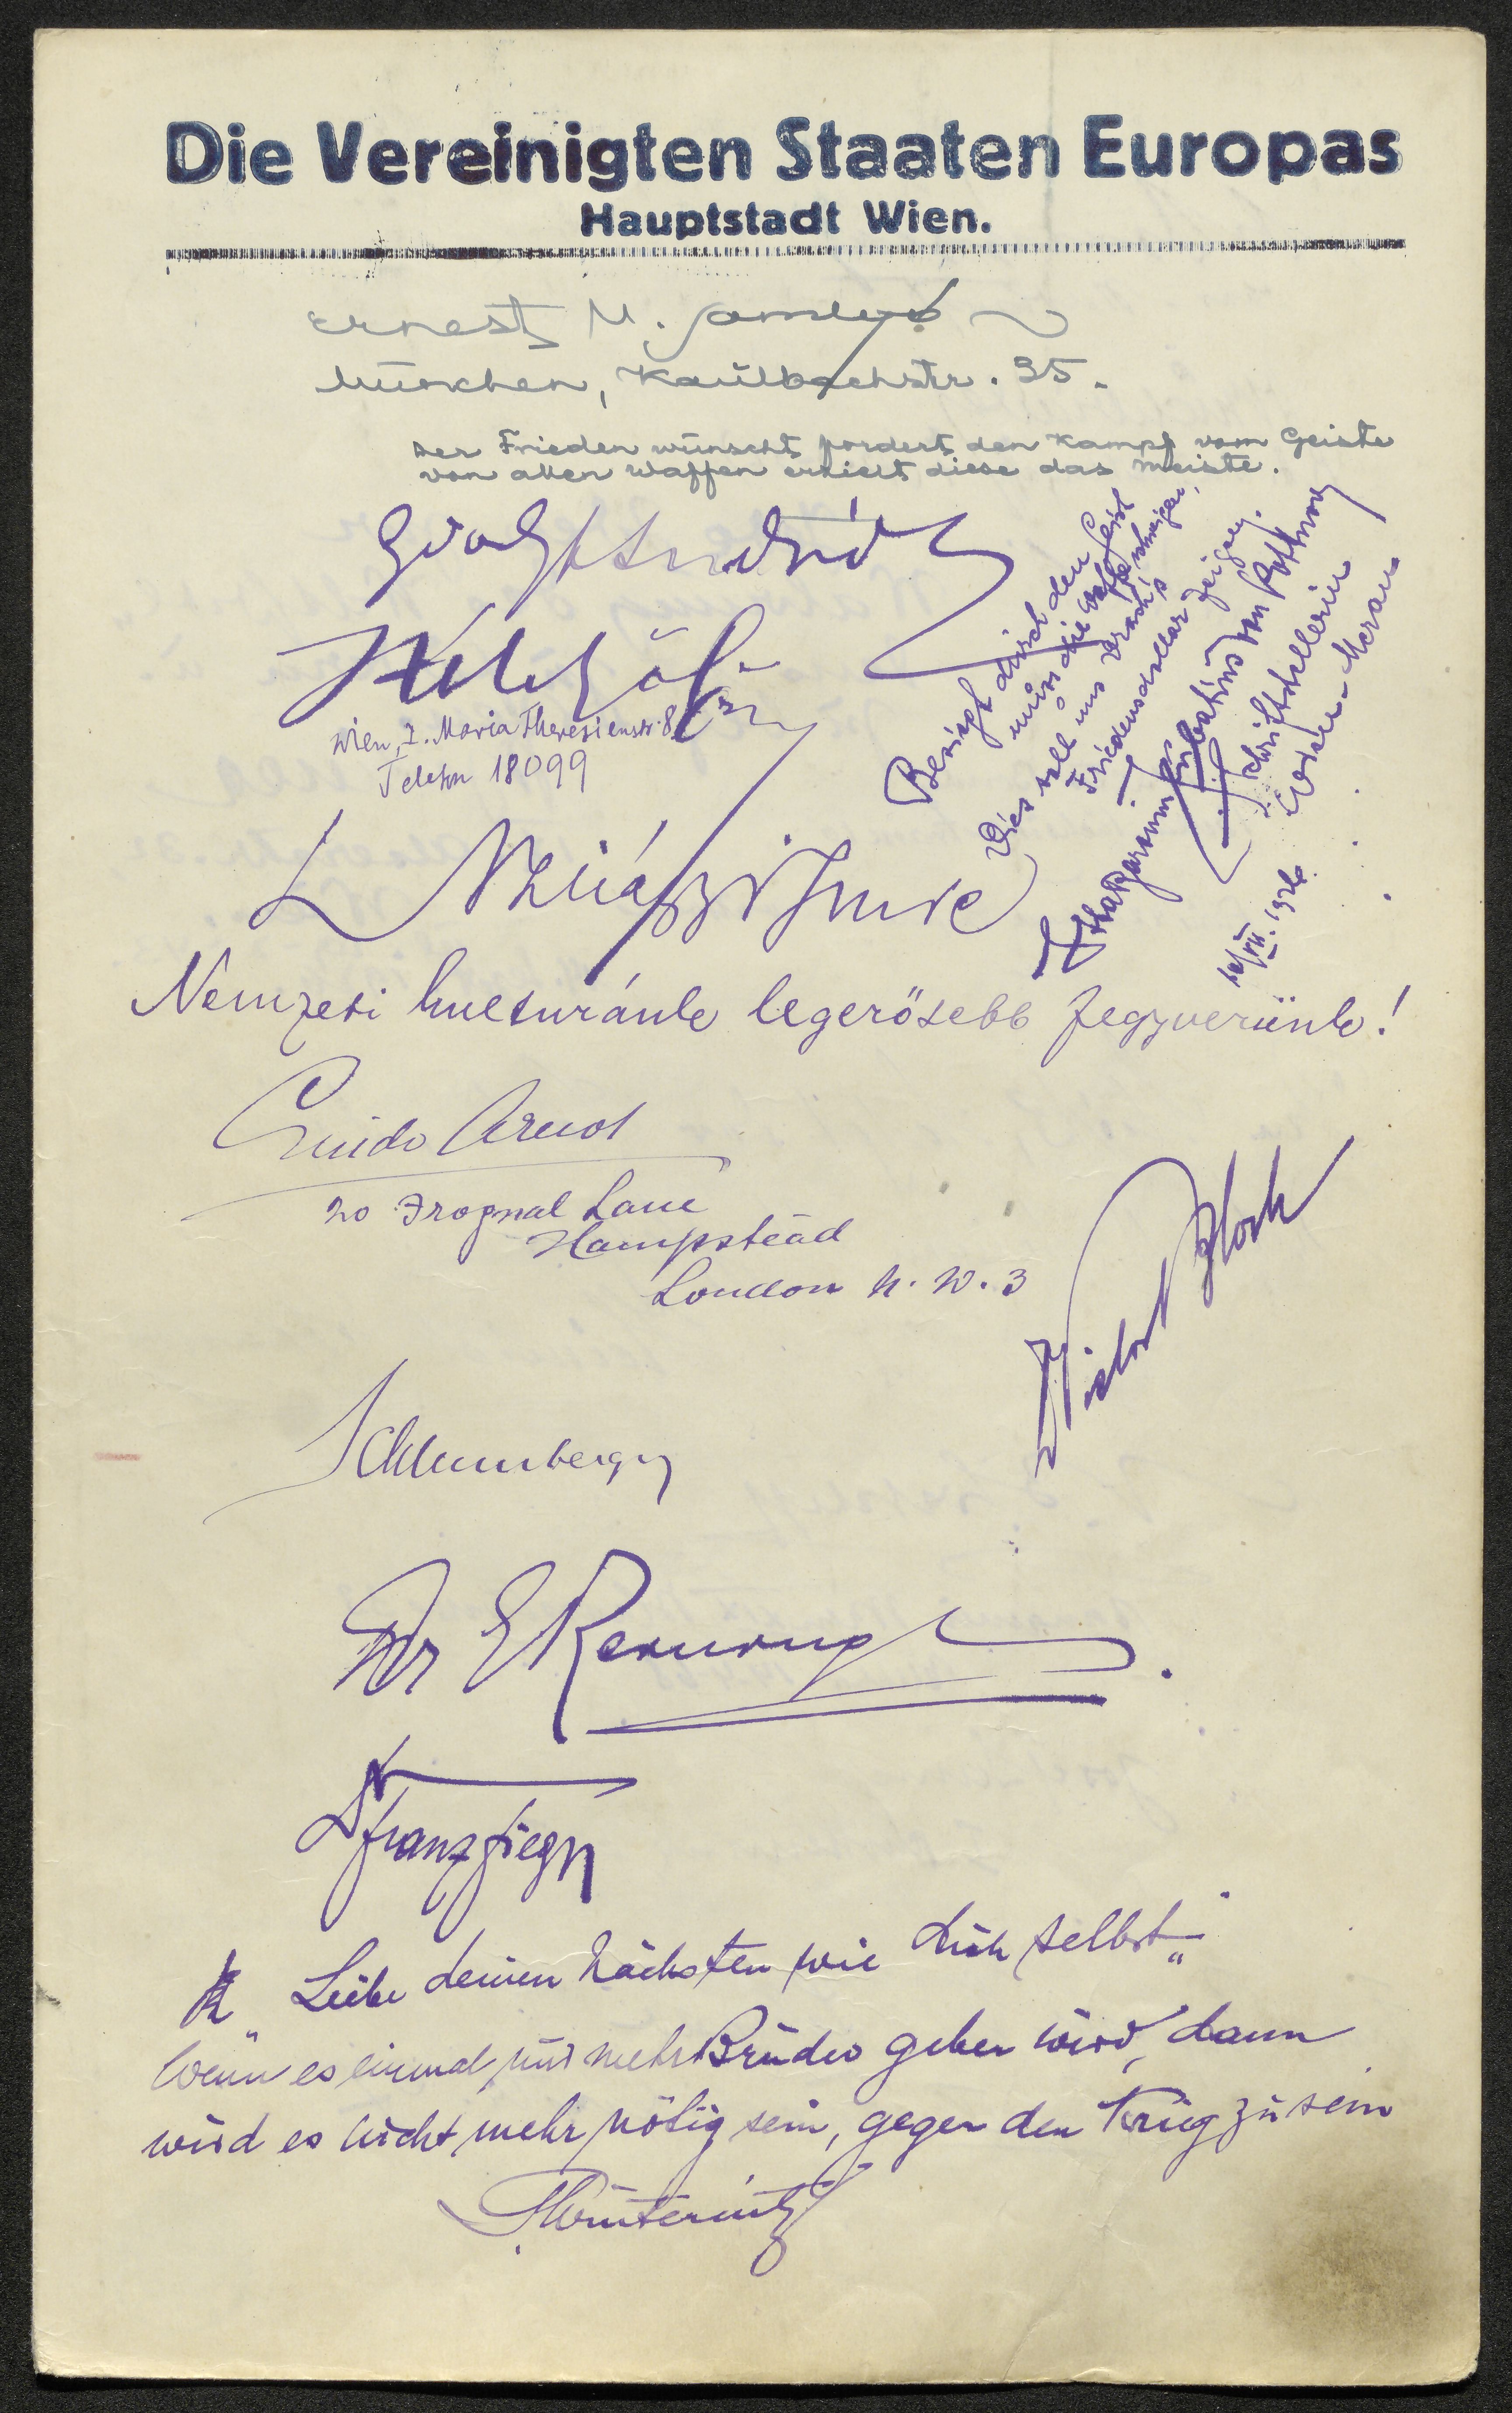 Die Vereinigten Staaten Europas
Hauptstadt Wien.
Ernest M.
München, Kaulbachstr. 35.
Der Frieden wünscht fordert den Kampf vom Geiste
von allen Waffen erhielt diese das meiste.
Besiegt durch den Geist
muss die Waffe schweigen,
Dies soll uns
Friedens zeigen.
von
Schriftstellerin
Meran
VII. 1926
Wien, I. Maria Theresienstr. 8
Telefon 18099
Imre
Nemzeti kulturánk legerősebb fegyverünk!
Guido Arnot
20 Frognal Lane
Hampstead
London N. W. 3
Victor Bloch
Schlumberger
Dr E
Dr Franz
„Liebe deinen Nächsten wie dich selbst"
Wenn es einmal nur mehr Brüder geben wird, dann
wird es nicht mehr nötig sein, gegen den Krieg zu sein